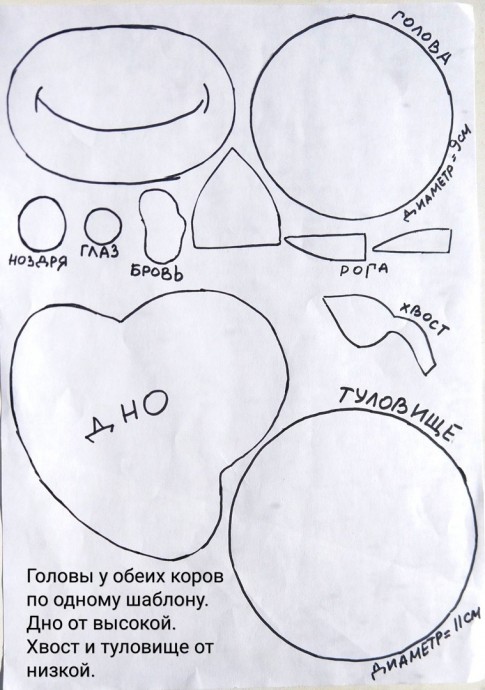 ГОЛОВА
ДИАМЕТР = 9СМ
НОЗДРЯ
ГЛАЗ
БРОВЬ
РОГА
ХВОСТ
ДНО
ТУЛОВИЩЕ
ДИАМЕТР = 11 СМ
Головы у обеих коров
по одному шаблону.
Дно от высокой.
Хвост и туловище от
низкой.